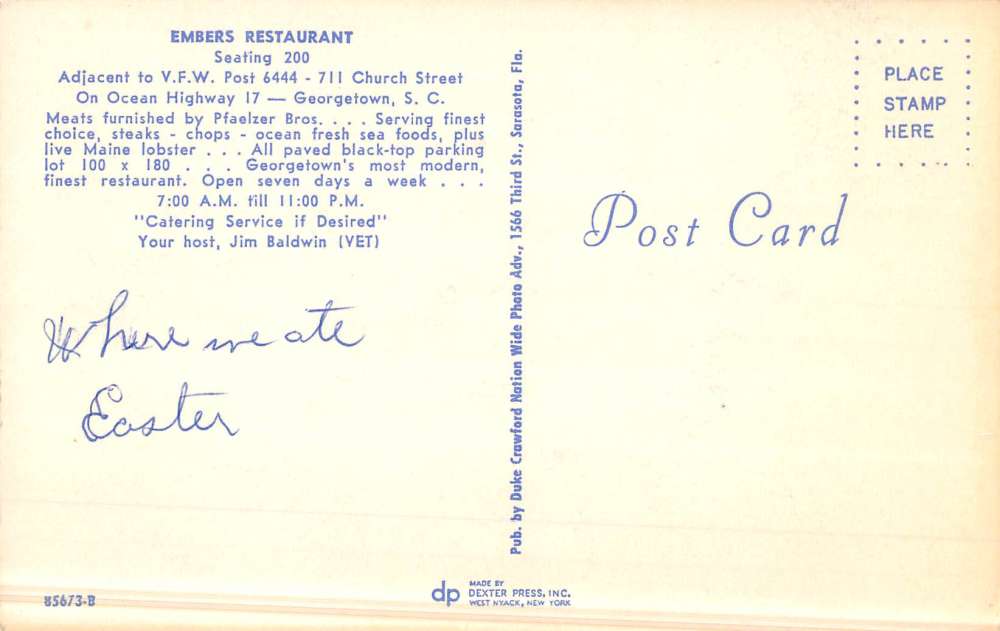 EMBERS RESTAURANT
Seating 200
Adjacent to V.F.W. Post 6444 - 711 Church Street
On Ocean Highway 17 — Georgetown, S. C.
Meats furnished by Pfaelzer Bros. . . . Serving finest
choice, steaks - chops - ocean fresh sea foods, plus
live Maine lobster . . . All paved black-top parking
lot 100 x 180 . . . Georgetown's most modern,
finest restaurant. Open seven days a week . . .
7:00 A.M. till 11:00 P.M.
"Catering Service if Desired"
Your host, Jim Baldwin (VET)
Where we ate
Easter
85673-B
Pub. by Duke Crawford Nation Wide Photo Adv., 1566 Third St., Sarasota, Fla.
dp
MADE BY
DEXTER PRESS, INC.
WEST NYACK, NEW YORK
PLACE
STAMP
HERE
Post Card